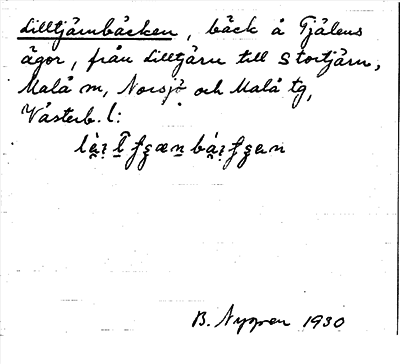 Lilltjärnbäcken, bäck å Tjälens
ägor, från Lilltjärn till Stortjärn,
Malå sn, Norsjö och Malå tg,
Västerb. l:
B. Nygren 1930